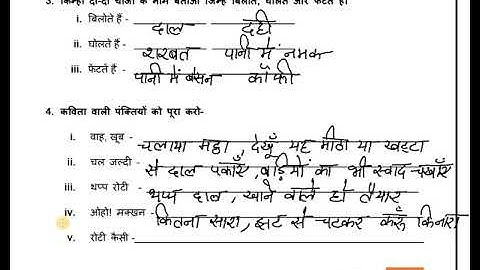 3. किन्हीं दो-दो चीजों के नाम बताओ जिन्हें बिलोते, घोलते और फेंटते हैं।
i. बिलोते हैं - दाल दही
ii. घोलते हैं - शरबत पानी में नमक
iii. फेंटते हैं - पानी में बेसन कॉफी
4. कविता वाली पंक्तियों को पूरा करो-
i. वाह, खूब - चलाया मट्ठा, देखूँ यह मीठा या खट्टा
ii. चल जल्दी - से दाल पकाएँ, वड़ियों का भी स्वाद चखाएँ
iii. थप्प रोटी - थप्प दाल, खाने वाले हो तैयार
iv. ओहो! मक्खन - कितना सारा, झट से चटकर करूँ किनारा
v. रोटी कैसी -